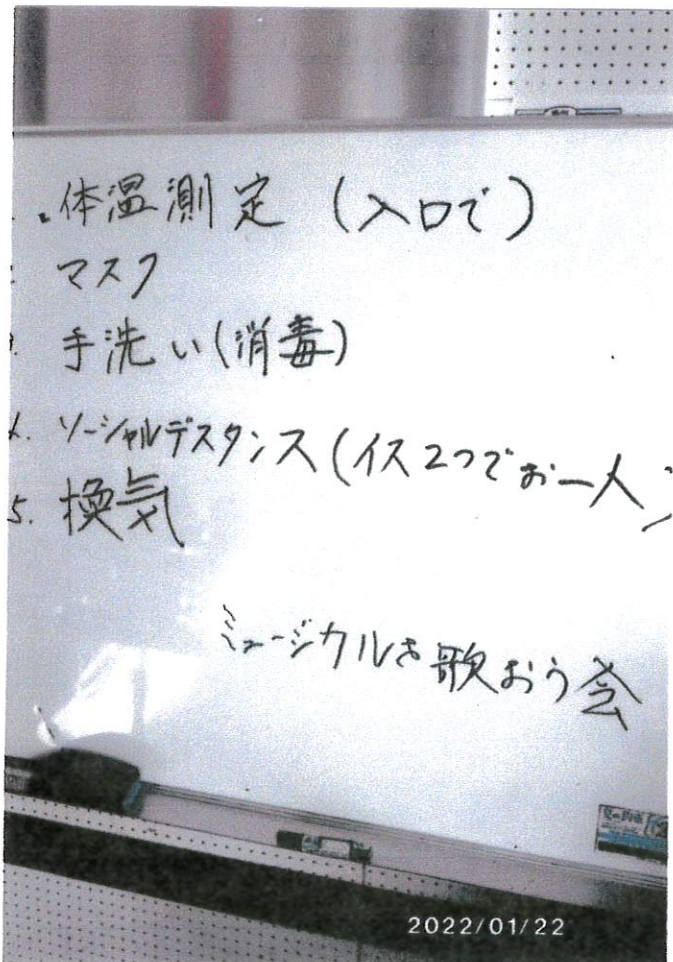 1. 体温測定 (入口で)
2. マスク
3. 手洗い(消毒)
4. ソーシャルデスタンス(イス2つでお一人)
5. 換気
ミュージカルを歌おう会
2022/01/22